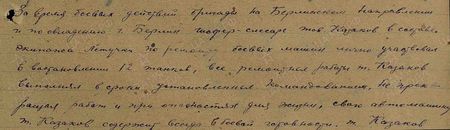 За время боевых действий бригады на Берлинском направлении
и по овладению г. Берлин шофер-слесарь тов. Казаков в составе
экипажей Летучки по ремонту боевых машин лично участвовал
в востановлении 12 танков, все ремонтные работы т. Казаков
выполнял в сроки установленные командованием, не прек-
ращая работ и при опасностях для жизни, свою автомашину
т. Казаков содержит всегда в боевой готовности. т. Казаков